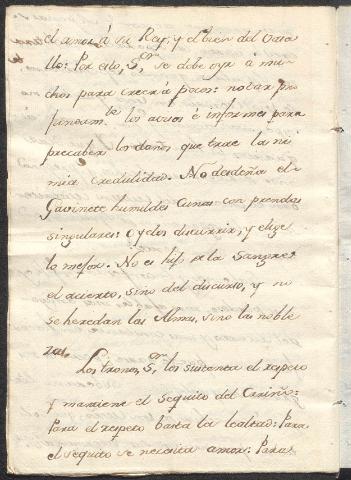 el amor á su Rey, y el bien del Vasa
llo: Por esto, S.or se debe oyr á mu
chos para creer á pocos: notar pro
fundam.te los avisos é informes para
precaber los daños que trae la ni
mia credulidad. No desdeña el
Gavinete humildes Cunas con prendas
singulares: oyelos discurrir, y elige
lo mejor. No es hijo de la Sangre
el acierto, sino del discurso, y no
se heredan las Almas, sino las noble
zas.
Los tronos, S.or, los sustenta el respeto
y mantiene el Sequito del Cariño:
Para el respeto basta la lealtad: Para
el sequito se necesita amor: Para